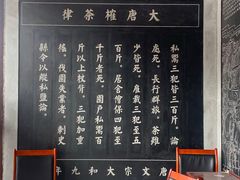 大唐榷茶律
私鬻三犯皆三百斤,論
處死。長行群旅,茶雖
少皆死。雇載三犯至五
百斤、居舍儈保四犯至
千斤者死。園戶私鬻百
斤以上杖背,三犯加重
徭。伐園失業者,刺史
縣令以縱私鹽論。
唐文宗大和九年